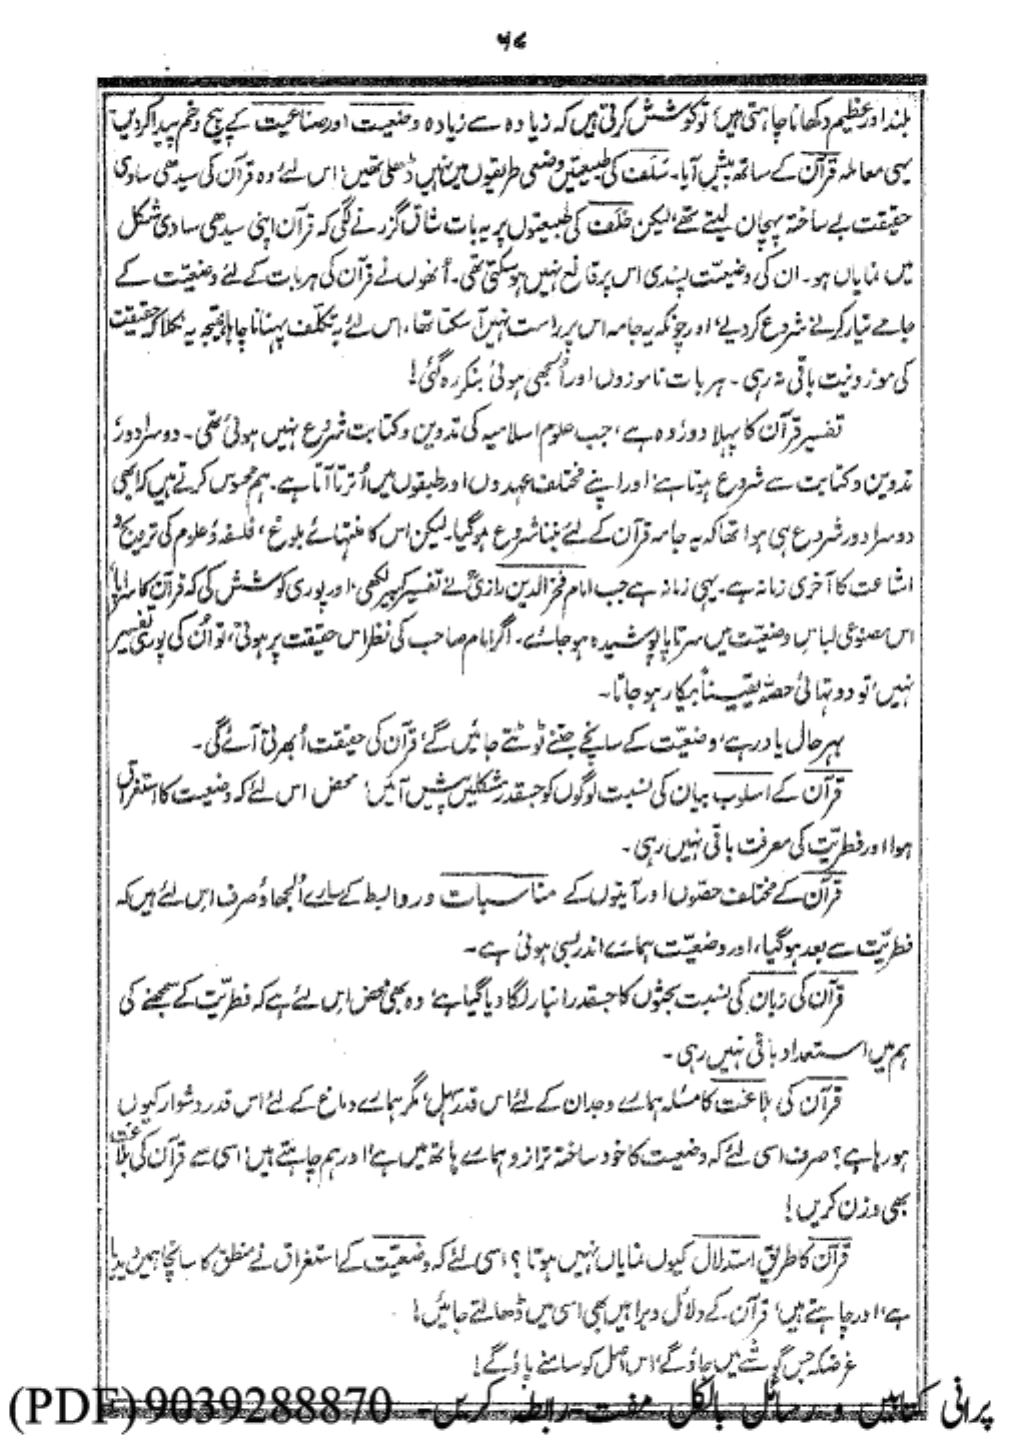 ۵۷
بلند اور عظیم دکھانا چاہتی ہیں، تو کوشش کرتی ہیں کہ زیادہ سے زیادہ وضعیت اور صناعیت کے پیچ و خم پیدا کردیں۔
یہی معاملہ قرآن کے ساتھ پیش آیا۔ سلف کی طبیعتیں وضعی طریقوں میں نہیں ڈھلی تھیں، اس لئے وہ قرآن کی سیدھی سادی
حقیقت بے ساختہ پہچان لیتے تھے، لیکن خلف کی طبیعتوں پر یہ بات شاق گزرنے لگی کہ قرآن اپنی سیدھی سادی شکل
میں نمایاں ہو۔ ان کی وضعیت پسندی اس پر قانع نہیں ہو سکتی تھی۔ اُنھوں نے قرآن کی ہر بات کے لئے وضعیت کے
جامے تیار کرنے شروع کردیے، اور چونکہ یہ جامہ اس پر راست نہیں آسکتا تھا، اس لئے بہ تکلف پہنانا چاہا، نتیجہ یہ نکلا کہ حقیقت
کی موزونیت باقی نہ رہی۔ ہر بات ناموزوں اور اُلجھی ہوئی بنکر رہ گئی!
تفسیر قرآن کا پہلا دور وہ ہے، جب علوم اسلامیہ کی تدوین و کتابت شروع نہیں ہوئی تھی۔ دوسرا دور
تدوین و کتابت سے شروع ہوتا ہے، اور اپنے مختلف عہدوں اور طبقوں میں اُترتا آتا ہے۔ ہم محسوس کرتے ہیں کہ ابھی
دوسرا دور شروع ہی ہوا تھا کہ یہ جامہ قرآن کے لئے بننا شروع ہوگیا۔ لیکن اس کا منتہائے بلوغ، فلسفہ و علوم کی ترویج و
اشاعت کا آخری زمانہ ہے۔ یہی زمانہ ہے جب امام فخر الدین رازیؒ نے تفسیر کبیر لکھی، اور پوری کوشش کی کہ قرآن کا سراپا
اس مصنوعی لباسِ وضعیت میں سرتاپا پوشیدہ ہو جائے۔ اگر امام صاحب کی نظر اس حقیقت پر ہوتی، تو اُن کی پوری تفسیر
نہیں، تو دو تہائی حصہ یقیناً بیکار ہو جاتا۔
بہرحال یاد رہے، وضعیت کے سانچے جتنے ٹوٹتے جائیں گے، قرآن کی حقیقت اُبھرتی آئے گی۔
قرآن کے اسلوب بیان کی نسبت لوگوں کو جسقدر مشکلیں پیش آئیں، محض اس لئے کہ وضعیت کا استغراق
ہوا اور فطریت کی معرفت باقی نہیں رہی۔
قرآن کے مختلف حصوں اور آیتوں کے مناسبات و روابط کے سارے اُلجھاؤ صرف اس لئے ہیں کہ
فطریت سے بعد ہوگیا، اور وضعیت ہمارے اندر بسی ہوئی ہے۔
قرآن کی زبان کی نسبت بحثوں کا جسقدر انبار لگا دیا گیا ہے، وہ بھی محض اس لئے ہے کہ فطریت کے سمجھنے کی
ہم میں استعداد باقی نہیں رہی۔
قرآن کی بلاغت کا مسئلہ ہمارے وجدان کے لئے اس قدر سہل، مگر ہمارے دماغ کے لئے اس قدر دشوار کیوں
ہو رہا ہے؟ صرف اسی لئے کہ وضعیت کا خود ساختہ ترازو ہمارے ہاتھ میں ہے، اور ہم چاہتے ہیں، اسی سے قرآن کی بلاغت
بھی وزن کریں!
قرآن کا طریق استدلال کیوں نمایاں نہیں ہوتا؟ اسی لئے کہ وضعیت کے استغراق نے منطق کا سانچا ہمیں دیدیا
ہے، اور چاہتے ہیں، قرآن کے دلائل و براہیں بھی اسی میں ڈھالتے جائیں!
غرضکہ جس گوشے میں جاؤ گے، اس اصل کو سامنے پاؤ گے!
پرانی کتابیں و رسائل بالکل مفت۔ رابطہ کریں۔ 9039288870 (PDF)